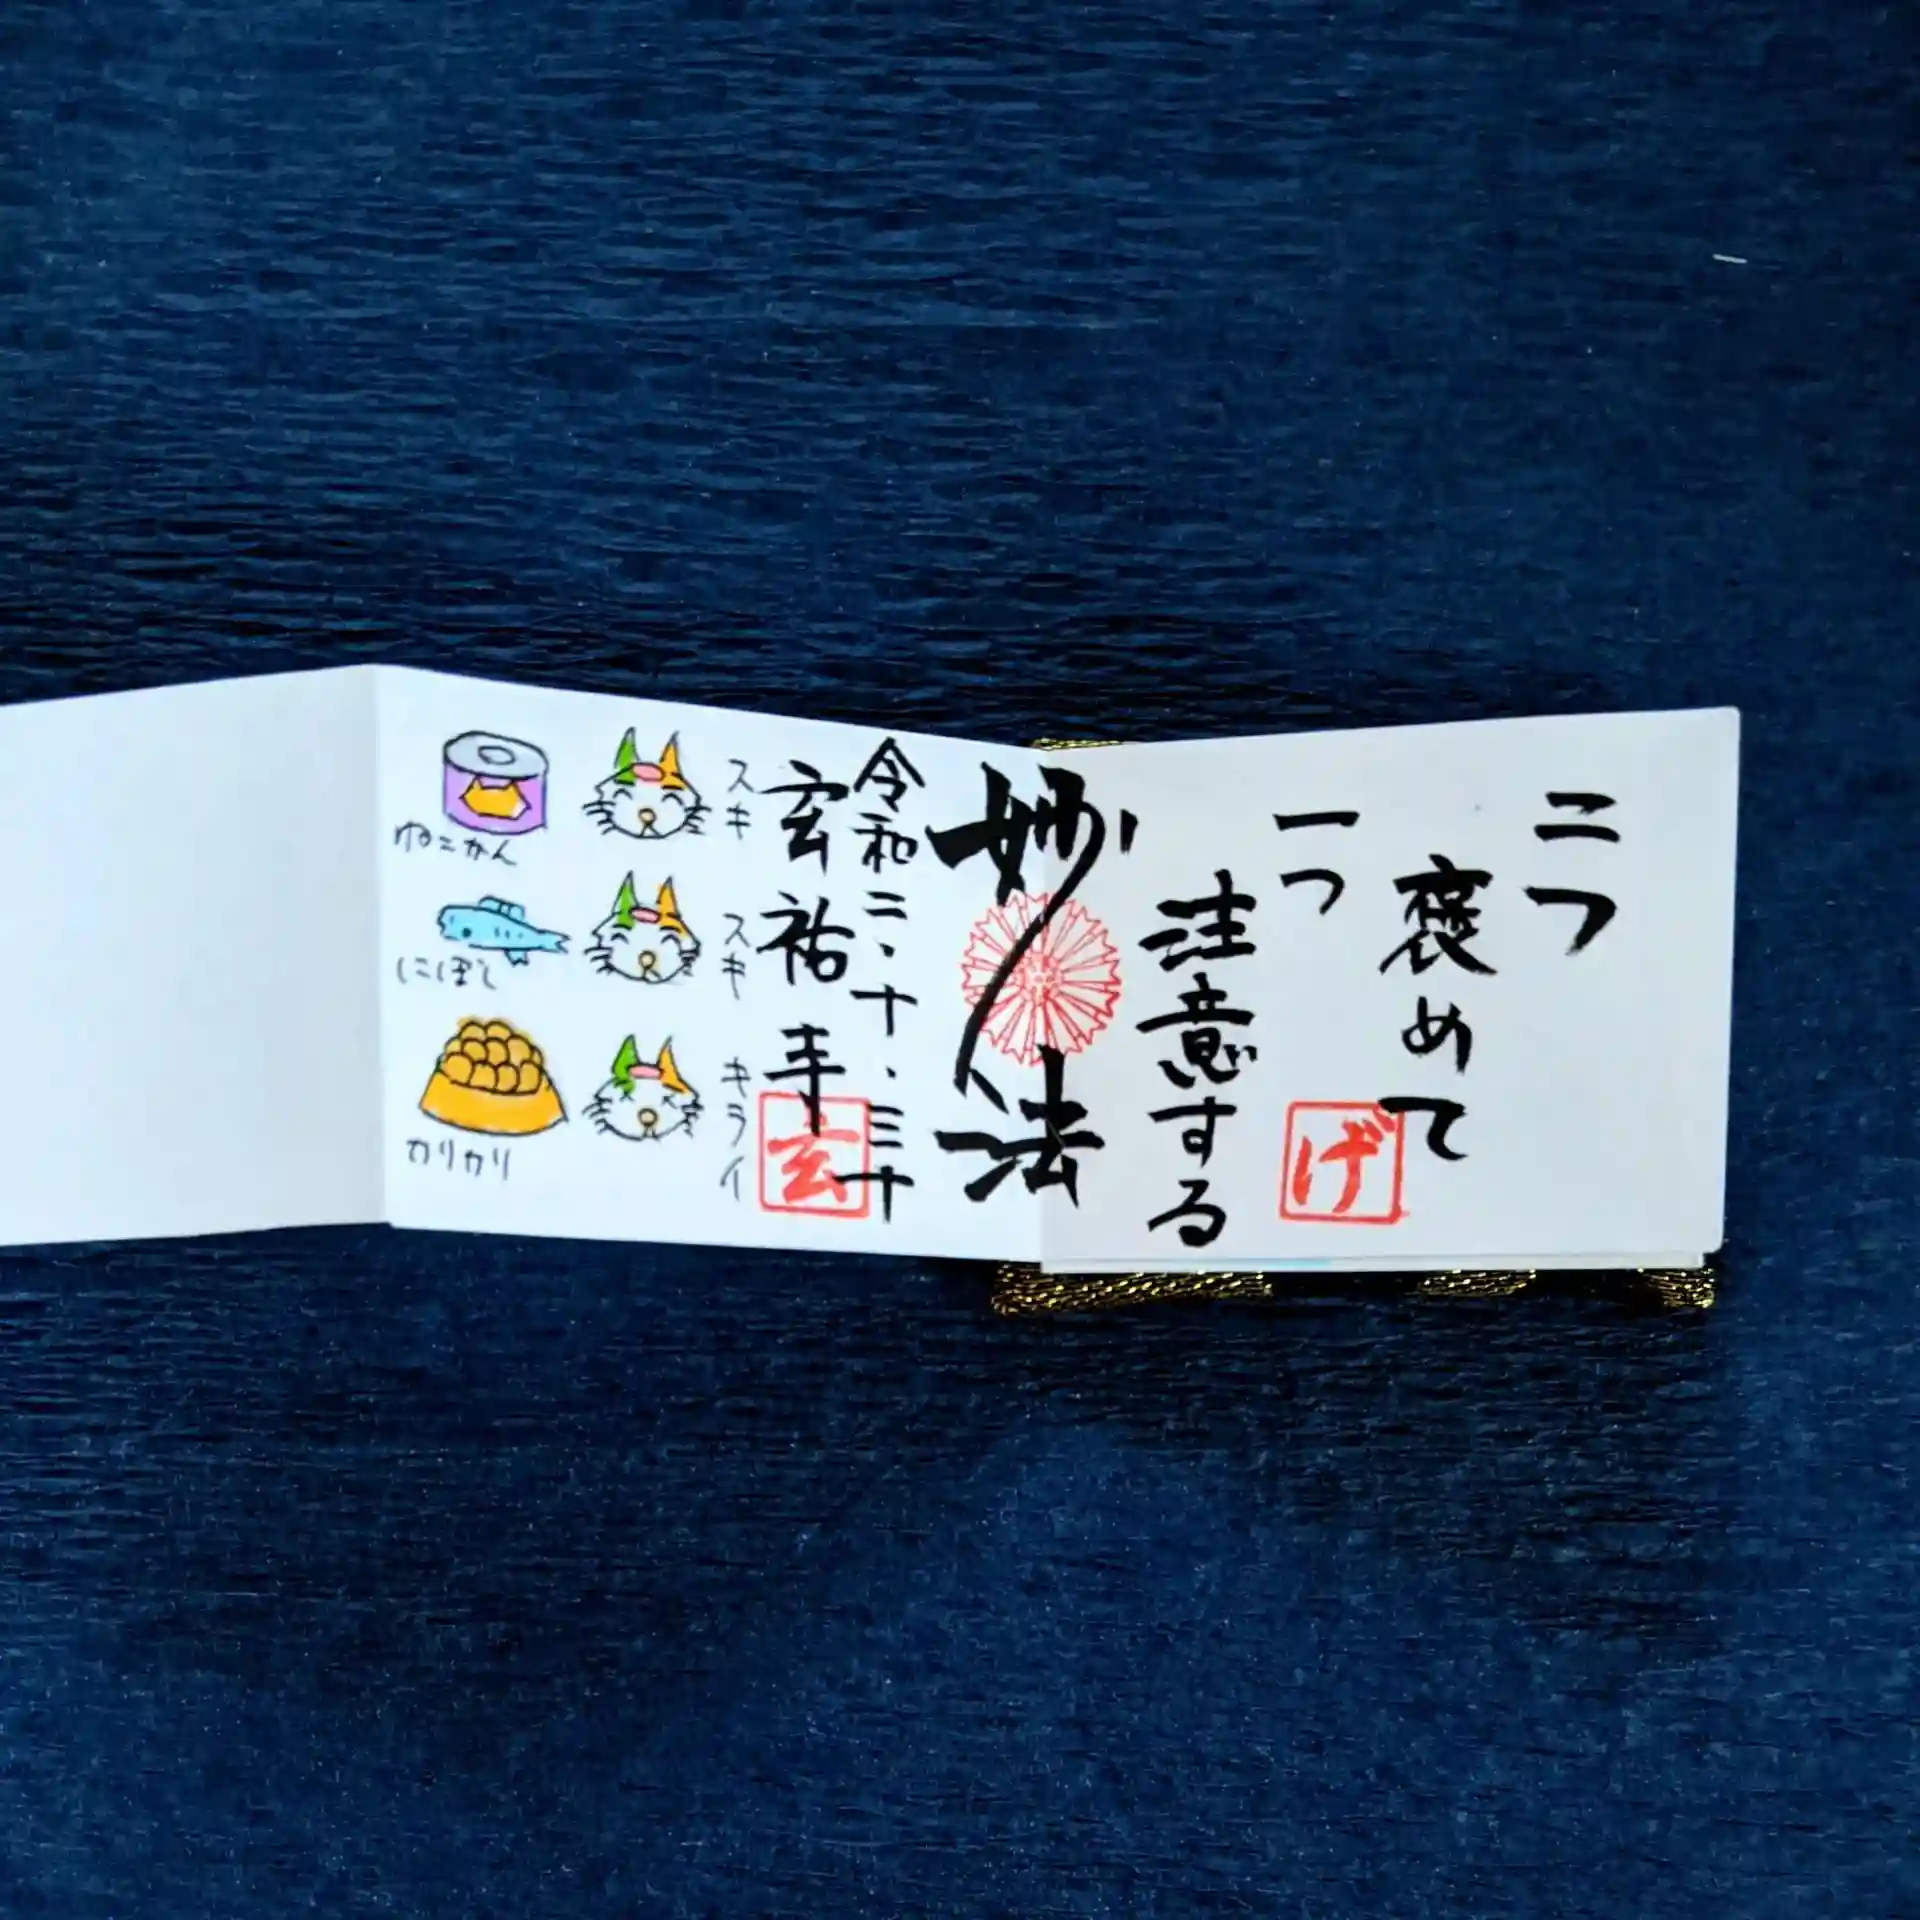 二つ
褒めて
一つ
注意する
げ
妙法
令和二、十、三十
玄祐
玄
スキ
ねこかん
スキ
にぼし
キライ
カリカリ